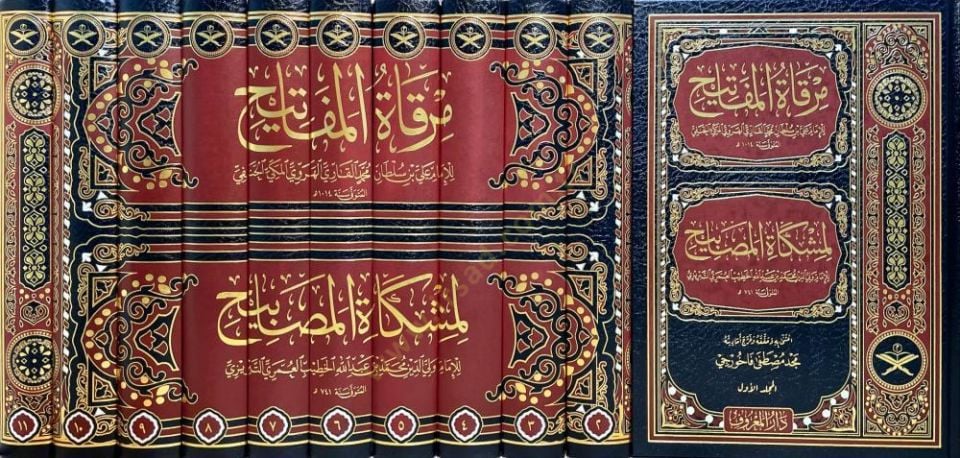 مرقاة المفاتيح
للإمام علي بن سلطان محمد القاري الهروي المكي الحنفي
المتوفى سنة ١٠١٤ه
لمشكاة المصابيح
للإمام ولي الدين محمد بن عبد الله الخطيب العمري التبريزي
المتوفى سنة ٧٤١ ه
١١ ١٠ ٩ ٨ ٧ ٦ ٥ ٤ ٣ ٢
مرقاة المفاتيح
للإمام علي بن سلطان محمد القاري الهروي المكي الحنفي
المتوفى سنة ١٠١٤ه
لمشكاة المصابيح
للإمام ولي الدين محمد بن عبد الله الخطيب العمري التبريزي
المتوفى سنة ٧٤١ ه
اعتنى به وحققه وخرج أحاديثه
محمد مصطفى فاخورجي
المجلد الأول
دار المعروف